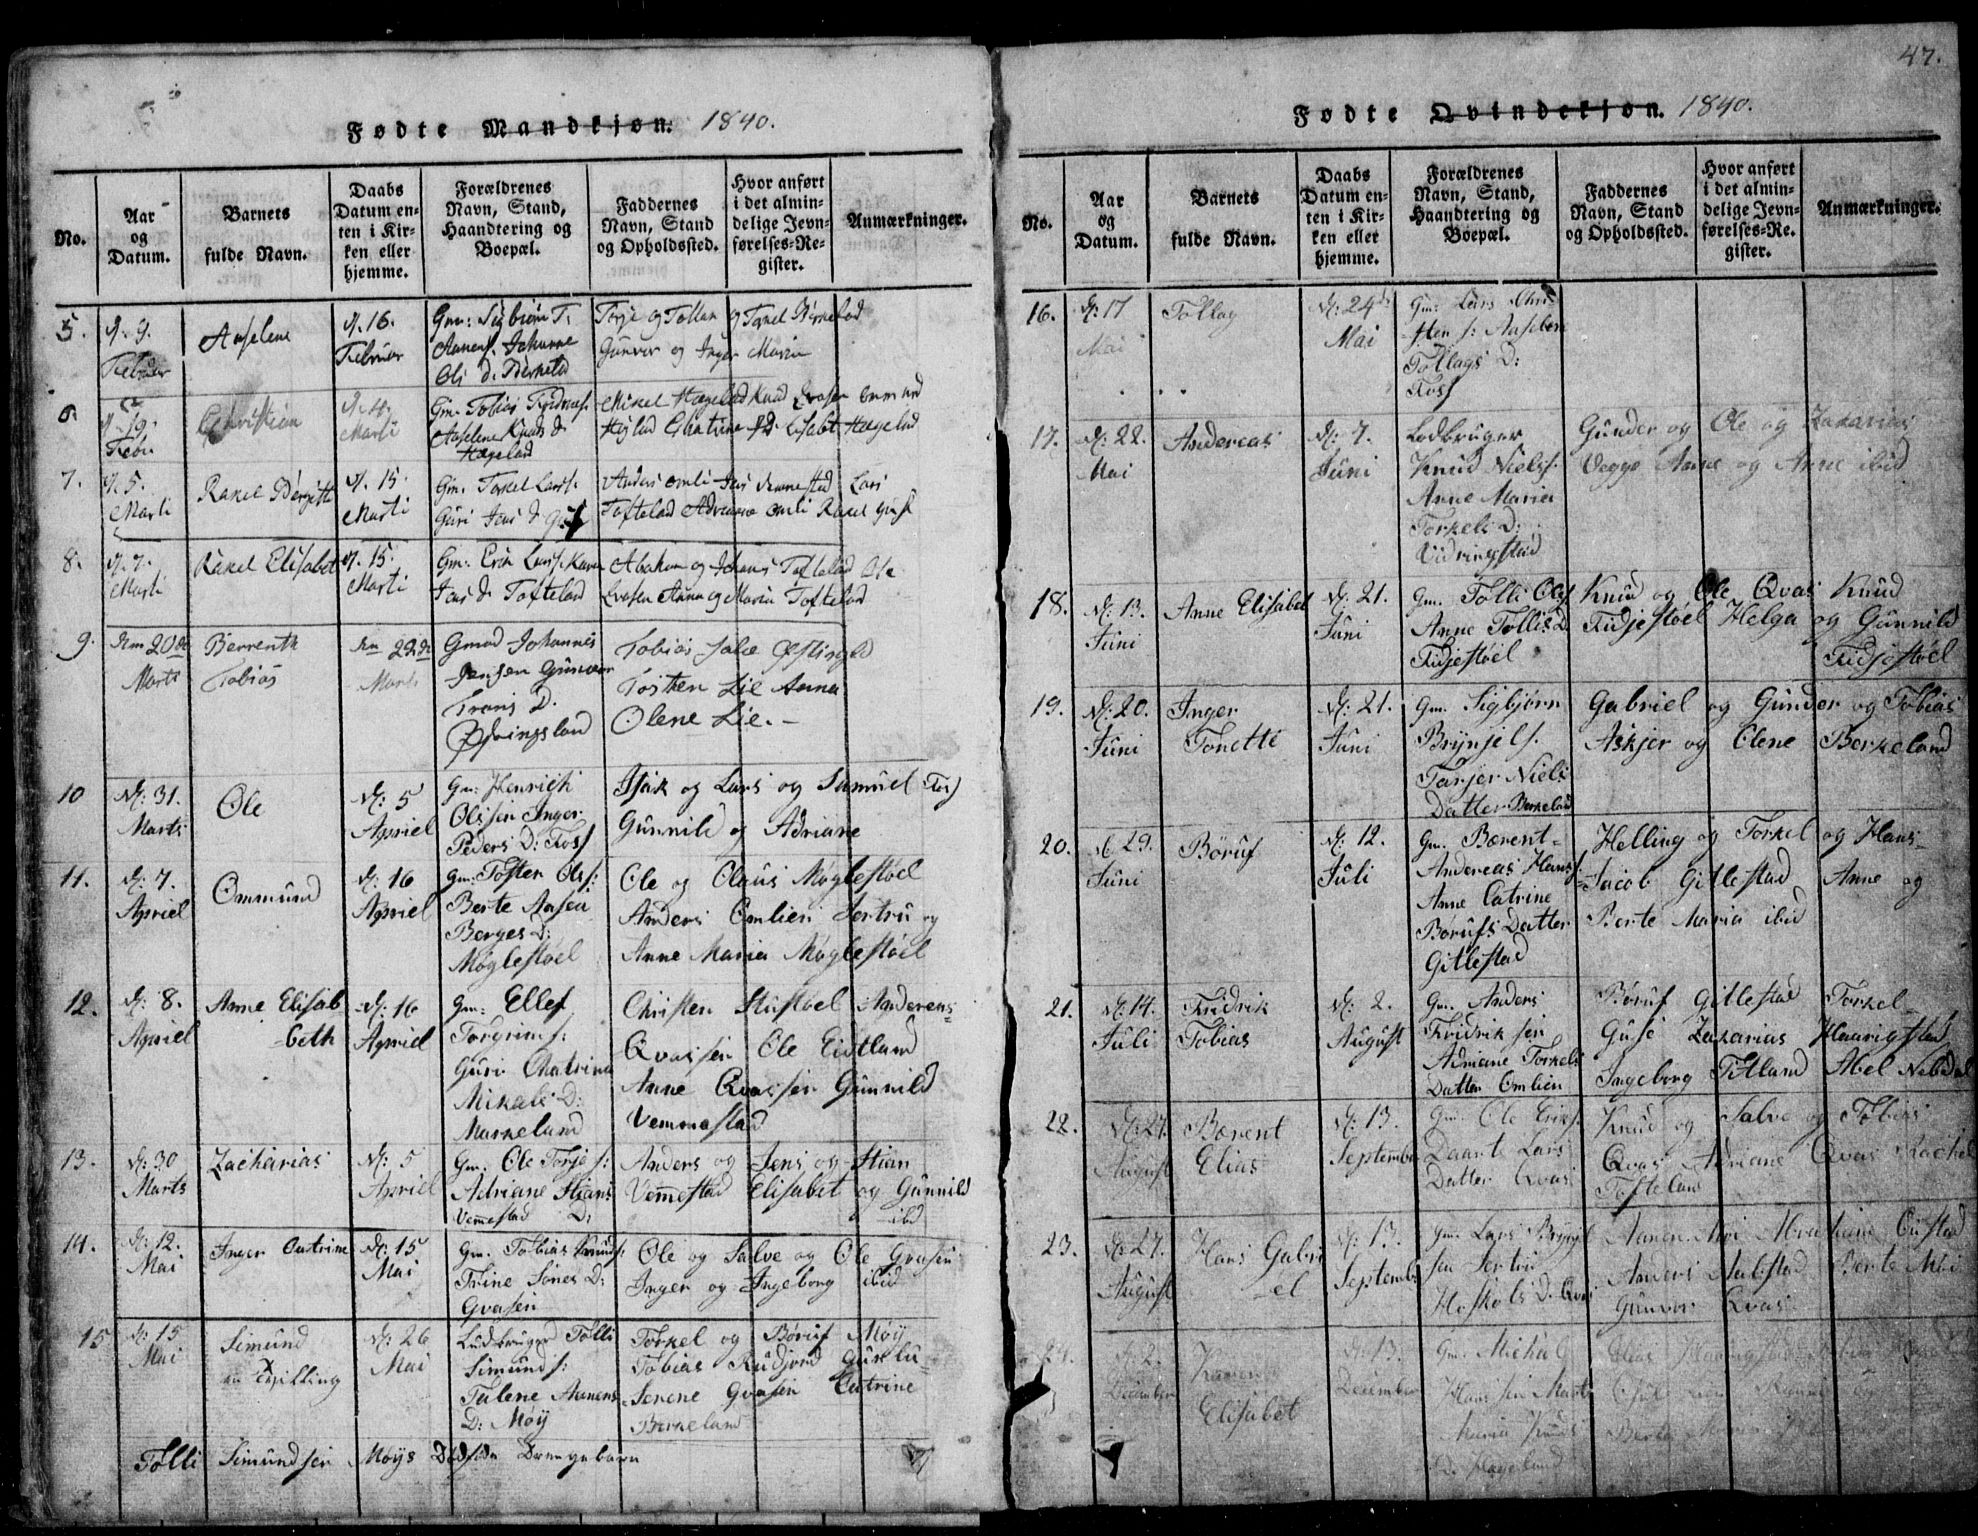 47.
Fødte Mandkjøn. 1840.
No.
Aar og Datum.
Barnets fulde Navn.
Daabs Datum enten i Kirken eller hjemme.
Forældrenes Navn, Stand, Haandtering og Boepæl.
Faddernes Navn, Stand og Opholdssted.
Hvor anført i det almindelige Jevnførelses-Register.
Anmærkninger.
5.
d. 9.
Februar
Aaselene
d. 16.
Februar
Gm: Sigbiørn T:
Aanens. Johanne
Ols d. Berkelad
Torje og Tollak og Torkel Berkelad
Gunvor og Inger Maria
6.
d. 19.
Febr
Christian
Marti
Gm. Tobias
Aaselene Knuds d.
Hægeland
Mikel Hægelad Knud Qvasen
Hægelad
7.
d. 5.
Marti
Rakel Bergitt
d. 15.
Marti
Gm. Torkel Lars s.
Guri Jens d.
Anders Omli Jens Vemmestad Lars
Toftelad Adriane Omli Rakel
8.
d. 7.
Marti
Rakel Elisabet
d. 15.
Marti
Gm. Erik Lars s. Karen
Jens d. Toftelad
Abraham og Johans Toftelad Ole
Qvasen Anna og Maria Toftelad
9.
den 20de
Marts
Berrenth
Tobias
den 22de
Marts
Gmad Johannes
Jensen Gunvor
Trons D.
Øfringsland
Tobias Salve
Tosten Lie Anna
Olene Lie. —
10
D: 31.
Marts
Ole
D: 5
Apriel
Gm: Henrich
Olssen Inger
Peders D: Foss
Isak og Lars og Samuel Foss
Gunnild og Adriane
11.
D: 7.
Apriel
Ommund
D: 16
Apriel
Gm: Tosten Ols s:
Berte Aasea
Berges D:
Møglestøel
Ole og Olaus Møglestøel
Anders Omlien Jertru og
Anne Maria Møglestøel
12.
D: 8.
Apriel
Anne Elisab
-beth
D: 16
Apriel
Gm: Ellef
Torgrim s:
Guri Chatrina
Mikals D:
Markeland
Christen Stustøel Anderens
Qvassen Ole Eidtland
Anne Qvassen Gunnild
Vemmestad
13.
D: 30
Marts
Zacharias
D: 5
Apriel
Gm. Ole Torje s:
Adriane Stians
Vemestad D:
Anders og Jens og Stian
Vemestad Elisabet og Gunnild
ibd
14.
D: 12.
Mai
Inger Catrine
D: 15
Mai
Gm. Tobias Knuds s.
Trine Sønes D:
Gvasen
Ole og Salve og Ole Gvasen
Inger og Ingeborg ibid
15
D: 15
Mai
Simund
en Tvilling
D: 26
Mai
Ludbruger Tolli
Simund s:
Talene Aanens
D: Møy
Torkel og Børuf Møy
Tobias Rudjord Gurelu
Serene Gvasen Catrine
Berkeland
Tolli Simundsen Møys Dødføde Drengebarn
Fødte Qvindekjøn. 1840.
No.
Aar og Datum.
Barnets fulde Navn.
Daabs Datum enten i Kirken eller hjemme.
Forældrenes Navn, Stand, Haandtering og Boepæl.
Faddernes Navn, Stand og Opholdssted.
Hvor anført i det almindelige Jevnførelses-Register.
Anmærkninger.
16.
D: 17
Mai
Tollag
D: 24de
Mai
Gm: Lars Chri
sten s: Aasebore
Tollags D:
Foss
17.
D: 22.
Mai
Andereas
D: 7.
Juni
Lodbruger
Knud Niels s.
Anne Maria
Torkels D:
Vidringstad
Gunder og Ole og Zakarias
Vegge Anne og Anne ibid
18.
D: 13.
Juni
Anne Elisabet
D: 21.
Juni
Gm. Tolli Ols s
Anne Tollis D.
Fidjestøel
Knud og Ole Qvas Knud
Fidjestøel Helga og Gunnild
Fidjestøel
19.
D: 20.
Juni
Inger
Tonetti
D: 21.
Juni
Gm. Sigbjørn
Brynjels.
Tarjer Niels
Datter Berkeland
Gabriel og Gunder og Tobias
Askjer og Olene Berkeland
20.
D: 29.
Juni
Børuf
D: 12.
Juli
Gm. Bærent
Andereas Hans s.
Anne Catrine
Børufs Datter
Gitlestad
Helling og Torkel og Hans
Jacob Gitlestad Anne og
Berte Maria ibid
21.
D: 14.
Juli
Fridrik
Tobias
D: 2.
August
Gm. Anders
Fridriksen
Adriane Torkels
Datter Omlien
Børuf Gitlestad Torkel
Guse Zakarias Haarigstad
Ingeborg Titland Abel Nebdal
22.
D: 27.
August
Bærent
Elias
D: 13.
September
Gm. Ole Eriks.
Daarte Lars
Datter Qvas
Knud og Salve og Tobias
Qvas Adriane Qvas Rachel
Tofteland
23.
D: 27.
August
Hans Gabri
-el
D: 13.
Septembr
Gm. Lars Brynjel
sen Jertru
Hoskols D. Qvas
Aanen Moi Abraham
Anders Berte Moi
Gunvor Qvas
24.
D: 2.
December
Karen
Elisabet
D: 13.
December
Gm. Michal
Hanssen Marte
Maria Knuds
D. Hægeland
Elias
Berte Maria